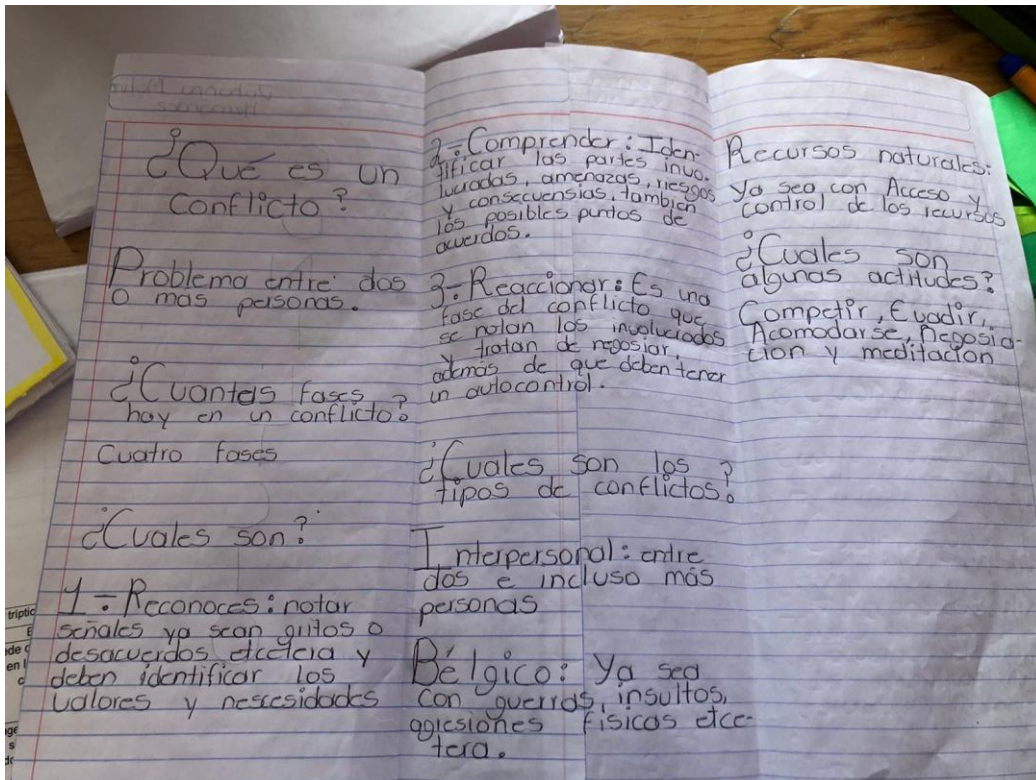 ¿Qué es un
Conflicto?
Problema entre dos
o mas personas.
¿Cuantas fases
hay en un conflicto?
Cuatro fases
¿Cuales son?
1.- Reconoces: notar
señales ya sean gritos o
desacuerdos etcetera y
deben identificar los
valores y nescesidades
2.- Comprender: Iden-
tificar las partes invo-
lucradas, amenazas, riesgos
y consecuensias, tambien
los posibles puntos de
acuerdos.
3.- Reaccionar: Es una
fase del conflicto que
se notan los involucrados
y tratan de negosiar,
además de que deben tener
un autocontrol.
¿Cuales son los
tipos de conflictos?
Interpersonal: entre
dos e incluso más
personas
Bélgico: Ya sea
con guerras, insultos,
agresiones físicas etce-
tera.
Recursos naturales:
Ya sea con Acceso y
control de los recursos
¿Cuales son
algunas actitudes?
Competir, Evadir,
Acomodarse, negosia-
cion y meditacion
triptic